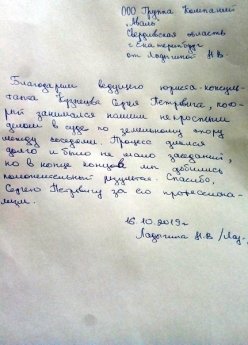 ООО Группа Компаний
"Авалъ
Свердловская область
г. Екатеринбург
от Ладыгиной Н.В
Благодарим ведущего юриста-консуль-
танта Кузнецова Сергея Петровича, кото-
рый занимался нашим непростым
делом в суде по земельному спору
между соседями. Процесс длился
долго и было не мало заседаний,
но в конце концов мы добились
положительный результат. Спасибо,
Сергею Петровичу за его профессиона-
лизм.
16.10.2019г
Ладыгина Н.В /Лад.